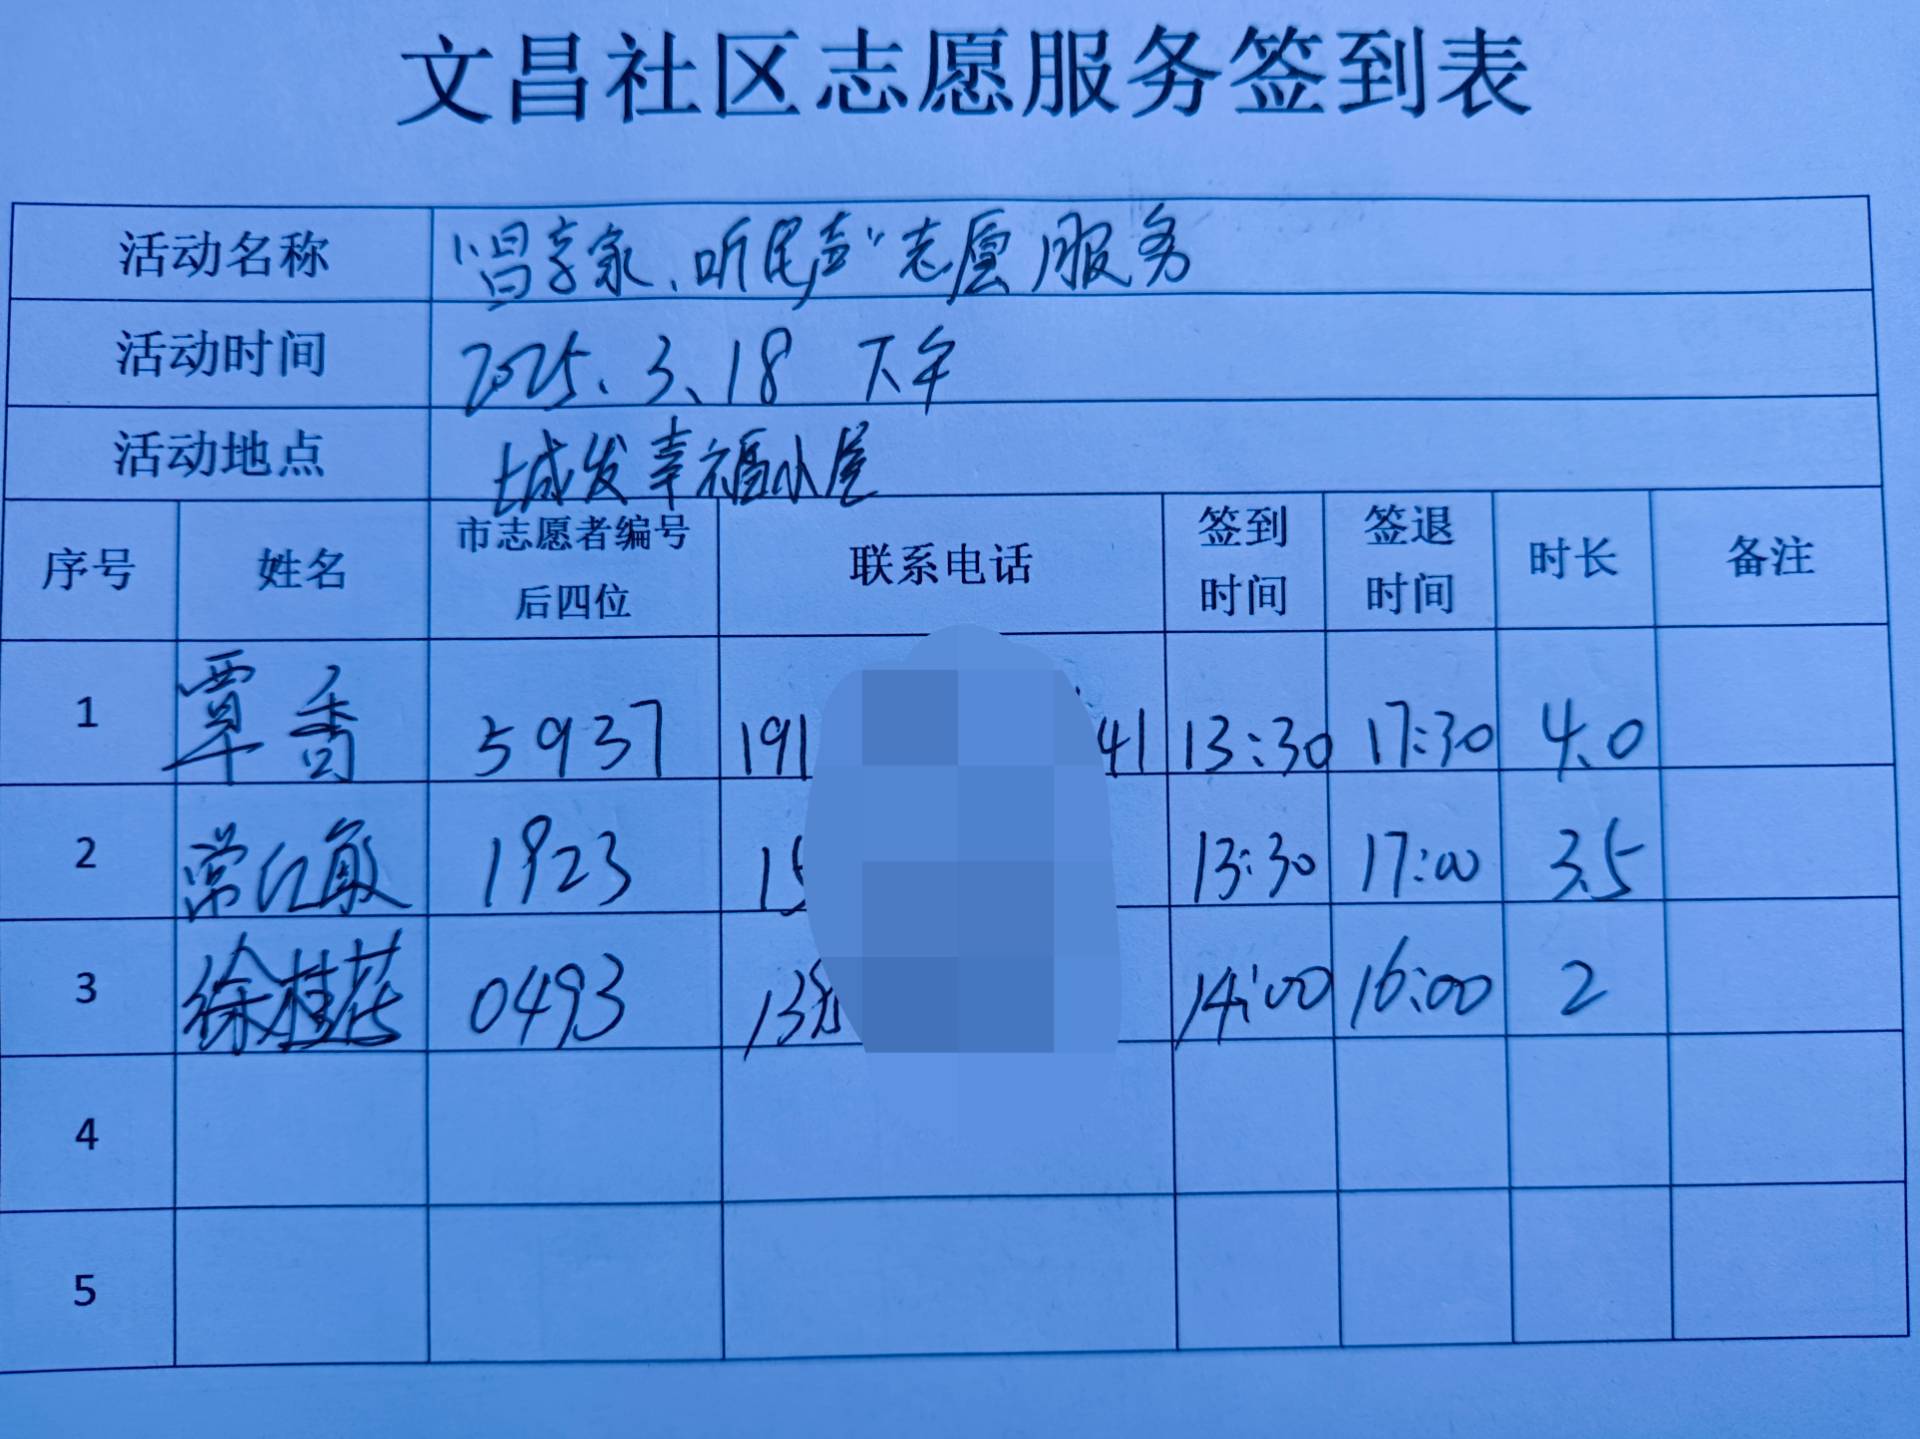 文昌社区志愿服务签到表
活动名称 “昌享家、听民声”志愿服务
活动时间 2025、3、18 下午
活动地点 城发幸福小屋
序号 姓名 市志愿者编号后四位 联系电话 签到时间 签退时间 时长 备注
1 覃香 5937 191 41 13:30 17:30 4.0
2 常红敏 1923 15 13:30 17:00 3.5
3 徐桂花 0493 13 14:00 16:00 2
4
5